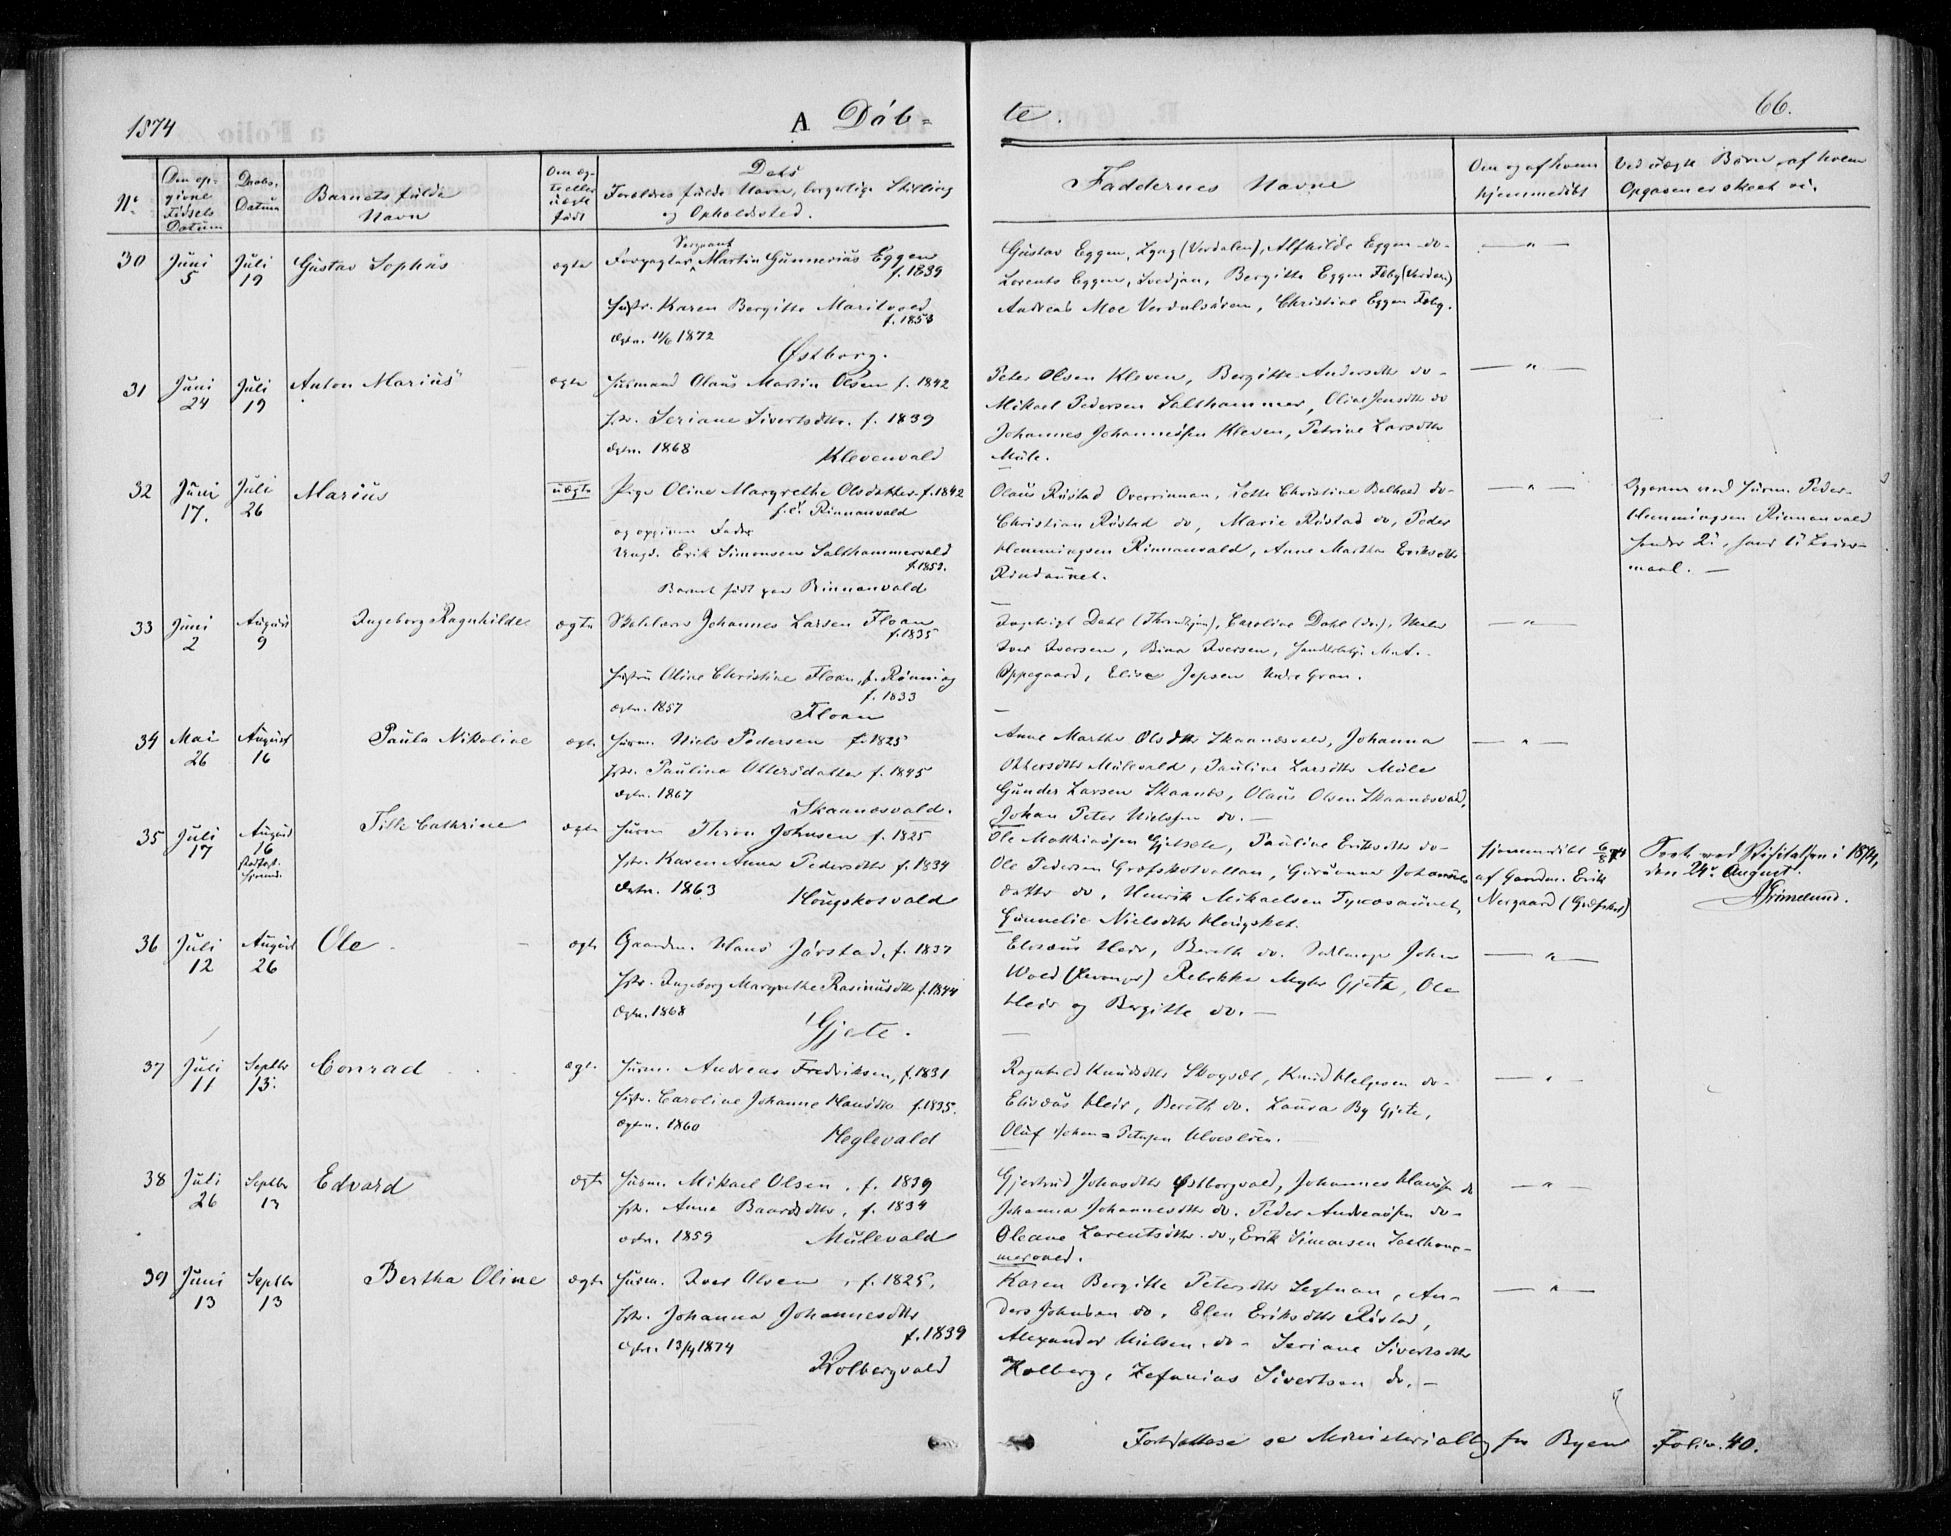 1874
A Døb-
te.
66.
No
Den op-
givne
Fødsels
Datum
Daabs-
Datum
Barnets fulde
Navn
Om æg-
te eller
uægte
født
Døbs
Forældres fulde Navn, borgerlige Stilling
og Opholdssted.
Faddernes Navne
Om og af hvem
hjemmedøbt
Ved uægte Børn, af hvem
Opgaven er skeet
30
Juni
5
Juli
19
Gustav Sophus
ægte
Sergeant
Forpagter Martin Gunnerius Eggen
f. 1839
Hustr. Karen Bergitte Maritvold
f. 1853
Ægtev. 11/6 1872
Østborg.
Gustav Eggen, (Verdalen), Alfhilde Eggen do-
Lorents Eggen, Svedjan, Bergitte Eggen Foby (Verdalen)
Andreas Moe Verdalsøren, Christine Eggen Foby.
31
Juni
24
Juli
19
Anton Marius
ægte
Husmand Olaus Martin Olsen f. 1842
Hstr. Seriane Sivertsdtr. f. 1839
Ægtev. 1868
Klevenvald
Peter Olsen Kleven, Bergitte Andersdtr do-
Mikael Pedersen Salthammer, Oline Jensdtr do
Johannes Johannessen Kleven, Petrine Larsdtr
Mule.
32
Juni
17.
Juli
26
Marius
uægte
Pige Oline Margrethe Olsdatter f. 1842
Rinnanvald
og opgiven Fader
Ungk. Erik Simonsen Salthammervald
f. 1852.
Barnet født paa Rinnanvald
Olaus Røstad Overrinnan, Lotte Christine Belbod do-
Christian Røstad do, Marie Røstad do, Peder
Hemmingsen Rinnanvald, Anne Martha Eriksdtr
Rindaunet.
Opgaven ved Husm. Peder
Hemmingsen Rinnanvald
hendes 2', hans 1' Leier-
maal. —
33
Juni
2
August
9
Ingeborg Ragnhilde
ægte
Johannes Larsen Floan
f. 1835
Hustru Oline Christine Floan, f. Rønning
f. 1833
Ægtev. 1857
Floan
Ingebrigt Dahl (Throndhjem), Caroline Dahl (do),
Iver Iversen, Bina Iversen,
Oppegaard, Elise Jepsen Undre Gran.
34
Mai
26
August
16
Paula Nikoline
ægte
Husm. Niels Pedersen f. 1825
Hstr. Pauline Ottersdatter f. 1845
Ægtev. 1867
Skaanæsvald.
Anne Martha Olsdtr Skaanæsvald, Johanna
Ottersdtr Mulevald, Pauline Larsdtr Mule
Gunder Larsen Skaanæs, Olaus Olsen Skaanæsvald,
Johan Peter Nielssen do. —
35
Juli
17
August
16
Stadfæst.
Hjemmed.
Cathrine
ægte
Husm Johnsen f. 1825
Hstr. Karen Anna Pedersdtr f. 1834
Ægtev. 1863
Hougskotvald
Ole Matthiassen Gjetsete, Pauline Eriksdtr do-
Ole Pedersen Grøfskotvallan, Gurianna Johannes
datter do, Henrik Mikaelsen Tyvesaunet,
Gunnelie Nielsdtr Hougskot.
Hjemmedøbt 6/8 74
af Gaardm. Erik
Nesgaard (Grøfskot)
ved Visitatsen i 1874,
den 24de August.
Grimelund.
36
Juli
12
August
26
Ole
ægte
Gaardm. Hans Jørstad, f. 1837
Hstr. Ingeborg Margrethe Rasmusdtr f. 1844
Ægtev. 1868
Gjete.
Elisæus Heir, Bereth do. John
Wold (Levanger) Rebekka Gjete, Ole
Heir og Bergitte do. —
37
Juli
11
Septbr
13.
Conrad
ægte
Husm. Andreas Fredriksen, f. 1831
Hstr. Caroline Johanna Hansdtr f. 1835.
Ægtev. 1860
Heglevald
Ragnhild Knudsdtr Skogset, Knud Helgesen do-
Elisæus Heir, Bereth do. Laura By Gjete,
Oluf Johan Petersen
38
Juli
26
Septbr
13
Edvard
ægte
Husm. Mikael Olsen, f. 1839
Hstr. Anne Baardsdtr, f. 1834
ægtev. 1859
Mulevald
Gjertrud Johasdtr Østborgvald, Johannes Hanssen do
Johanna Johannesdtr do. Peder Andreassen do-
Oleane Lorentsdtr. do., Erik Simonsen Saltham-
mervald.
39
Juni
13
Septbr
13
Bertha Oline
ægte
Husm. Iver Olsen, f. 1825,
Hstr. Johanna Johannesdtr
f. 1839
Ægtev. 13/4 1874
Holbergvald
Karen Bergitte Petersdtr Segtnan, An-
ders Johnsen do. Elen Eriksdtr Røstad,
Alexander Nielsen. do- Seriane Sivertsdtr
Holberg, Zefanias Sivertsen do. —
Fortsættelse se Ministerialbog for Byen Folio. 40.